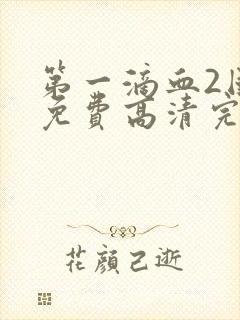 第一滴血2国
免费高清完
花顏已逝